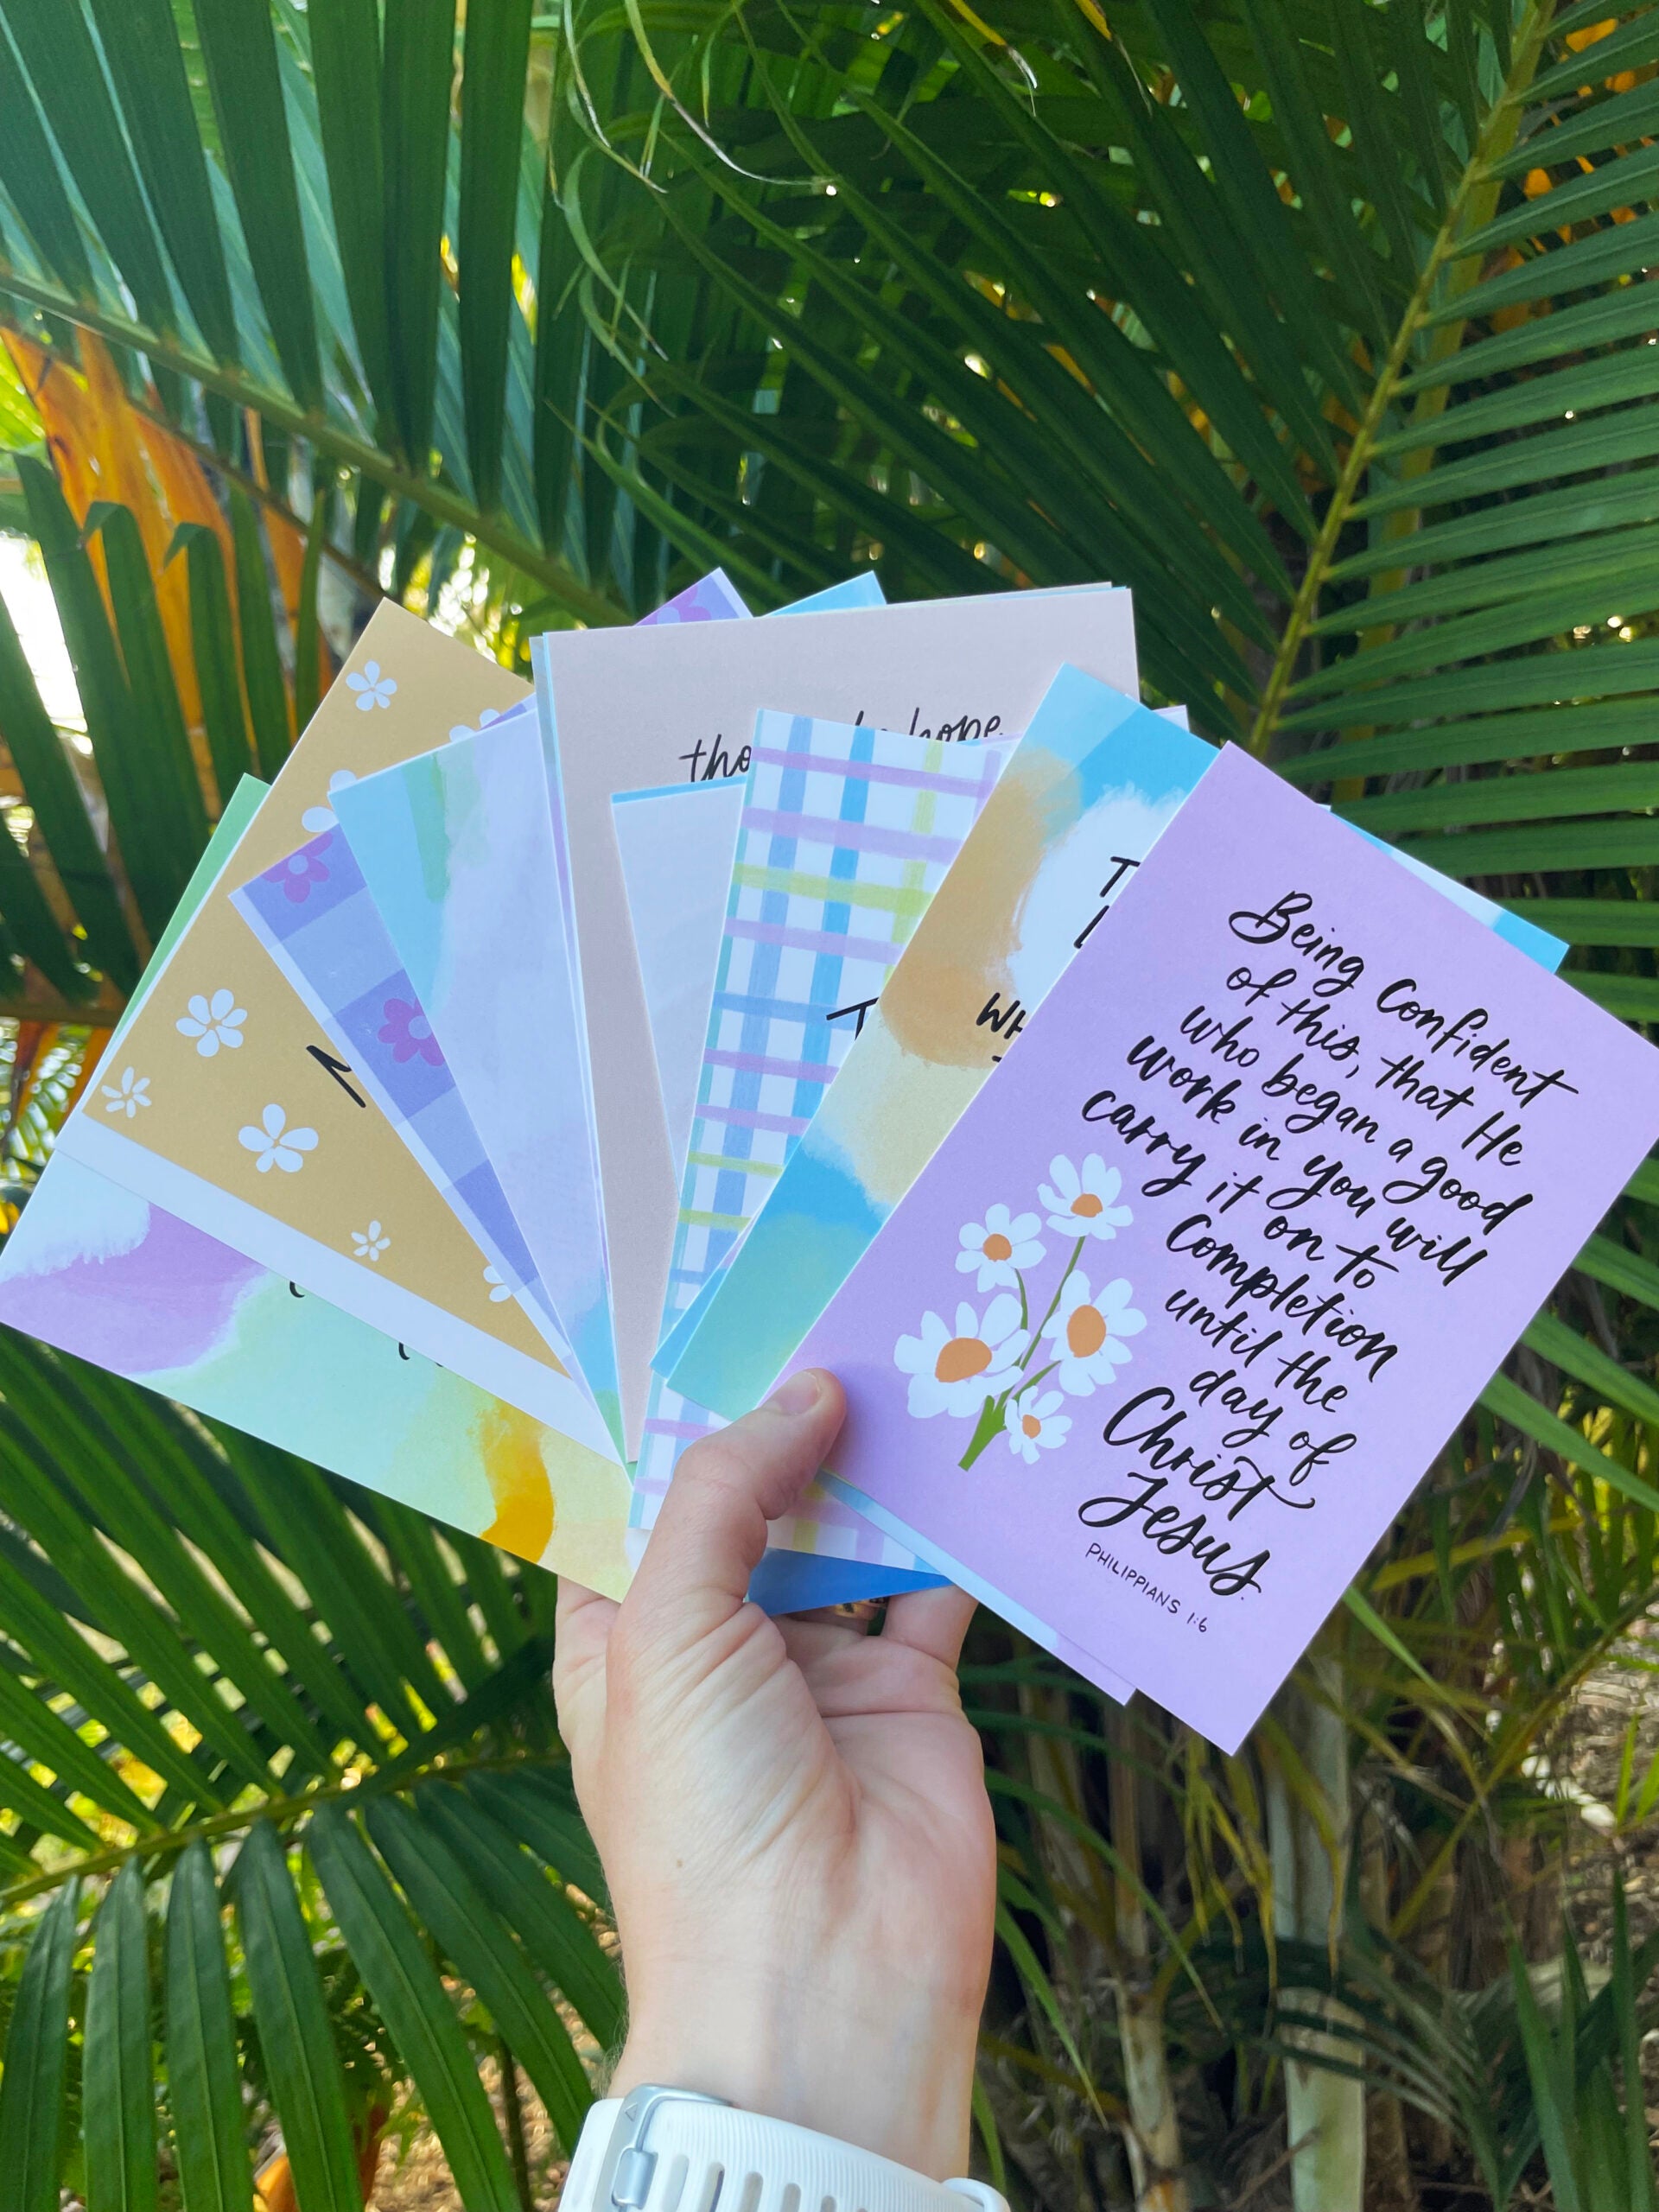 hope
Being Confident
of this, that He
who began a good
work in you will
carry it on to
Completion
until the
day of
Christ
Jesus.
PHILIPPIANS 1:6